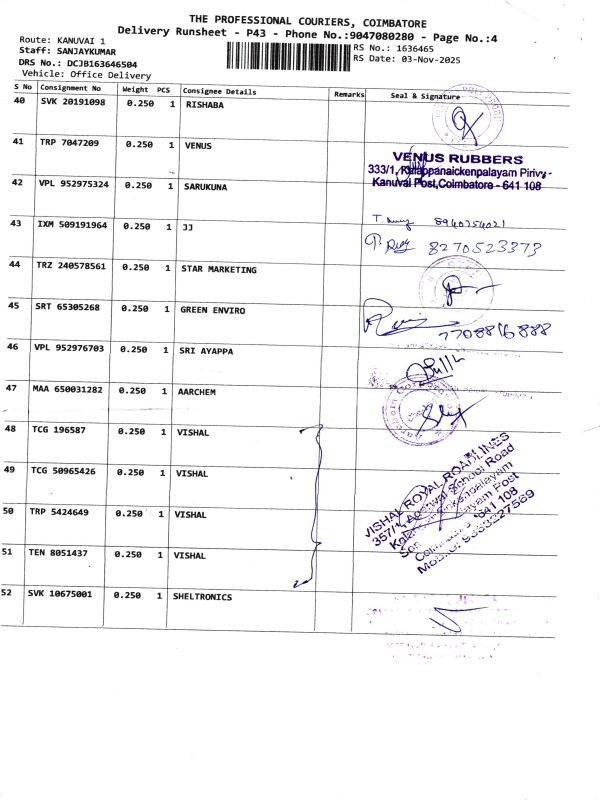 THE PROFESSIONAL COURIERS, COIMBATORE
Delivery Runsheet - P43 - Phone No.:9047080280 - Page No.:4
Route: KANUVAI 1
RS No.: 1636465
Staff: SANJAYKUMAR
RS Date: 03-Nov-2025
DRS No.: DCJB163646504
Vehicle: Office Delivery
S No Consignment No Weight PCS Consignee Details Remarks Seal & Signature
40 SVK 20191098 0.250 1 RISHABA
41 TRP 7047209 0.250 1 VENUS
VENUS RUBBERS
333/1, Kalappanaickenpalayam Pirivu-
Kanuvai Post,Coimbatore - 641 108
42 VPL 952975324 0.250 1 SARUKUNA
43 IXM 509191964 0.250 1 JJ
8940754021
8270523373
44 TRZ 240578561 0.250 1 STAR MARKETING
45 SRT 65305268 0.250 1 GREEN ENVIRO
7708816888
46 VPL 952976703 0.250 1 SRI AYAPPA
47 MAA 650031282 0.250 1 AARCHEM
48 TCG 196587 0.250 1 VISHAL
49 TCG 50965426 0.250 1 VISHAL
50 TRP 5424649 0.250 1 VISHAL
51 TEN 8051437 0.250 1 VISHAL
VISHAL ROYAL ROADLINES
School Road
Post
641 108
52 SVK 10675001 0.250 1 SHELTRONICS